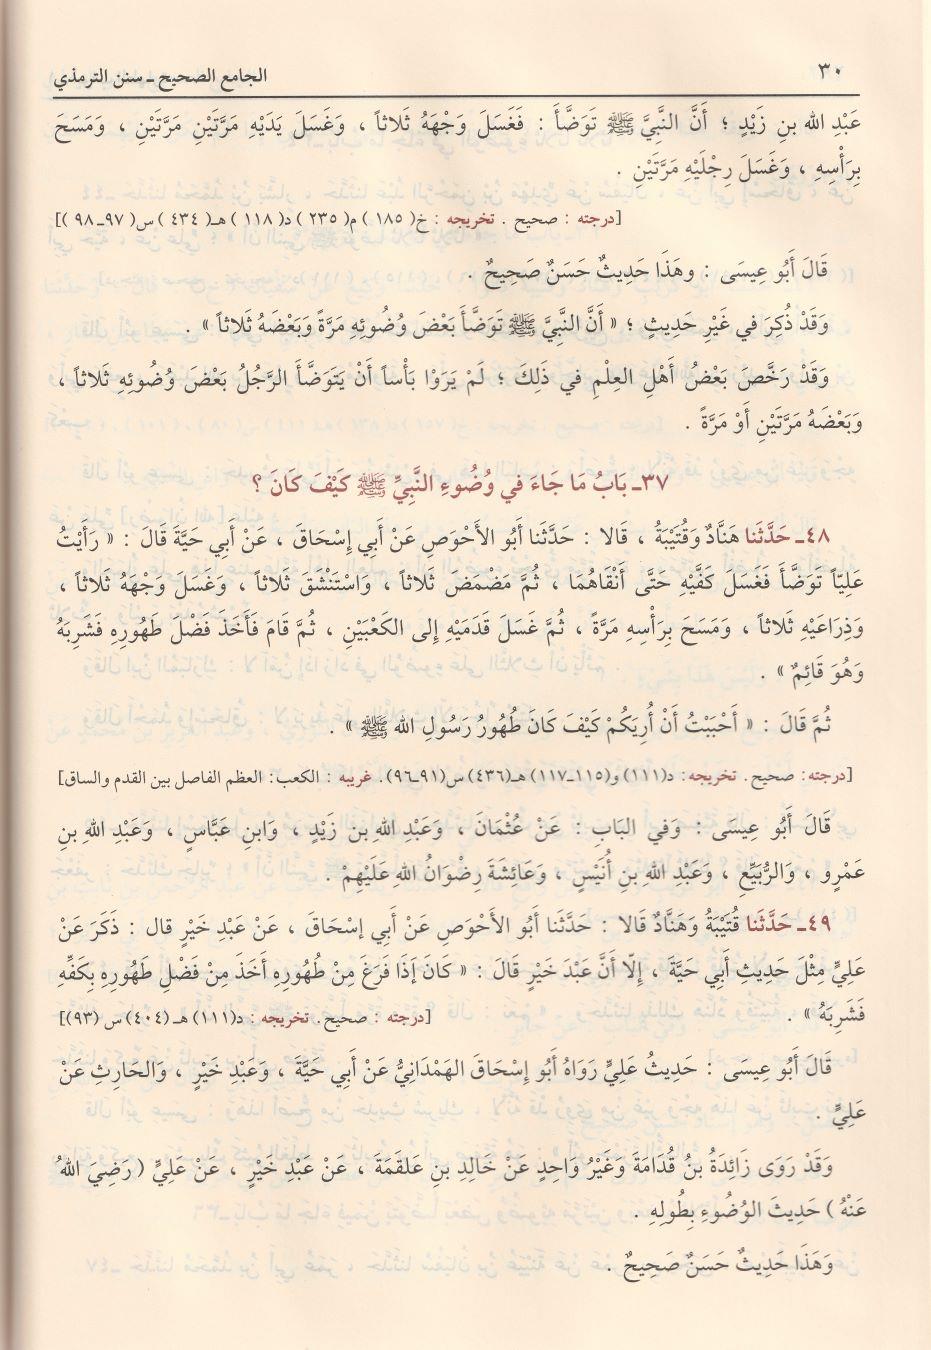 ٣٠
الجامع الصحيح ـ سنن الترمذي
عَبْدِ الله بنِ زَيْدٍ ؛ أَنَّ النَّبِيَّ ﷺ تَوَضَّأَ : فَغَسَلَ وَجْهَهُ ثَلاثاً ، وَغَسَلَ يَدَيْهِ مَرَّتَيْنِ مَرَّتَيْنِ ، وَمَسَحَ
بِرَأْسِهِ ، وَغَسَلَ رِجْلَيْهِ مَرَّتَيْنِ .
[درجته : صحيح . تخريجه : خ( ١٨٥ ) م( ٢٣٥ ) د( ١١٨ ) هـ( ٤٣٤ ) س( ٩٧ـ ٩٨ )]
قَالَ أَبُو عِيسَى : وهَذَا حَدِيثٌ حَسَنٌ صَحِيحٌ .
وَقَدْ ذُكِرَ في غَيْرِ حَدِيثٍ ؛ « أَنَّ النَّبِيَّ ﷺ تَوَضَّأَ بَعْضَ وُضُوئِهِ مَرَّةً وَبَعْضَهُ ثَلاثاً » .
وَقَدْ رَخَّصَ بَعْضُ أَهْلِ العِلْمِ في ذَلِكَ ؛ لَمْ يَرَوْا بَأْساً أَنْ يَتَوَضَّأَ الرَّجُلُ بَعْضَ وُضُوئِهِ ثَلاثاً ،
وَبَعْضَهُ مَرَّتَيْنِ أَوْ مَرَّةً .
٣٧ـ بَابُ مَا جَاءَ في وُضُوءِ النَّبِيِّ ﷺ كَيْفَ كَانَ ؟
٤٨ـ حَدَّثَنا هَنَّادٌ وَقُتَيْبَةُ ، قَالا : حَدَّثَنا أَبُو الأَحْوَصِ عَنْ أَبي إِسْحَاقَ ، عَنْ أَبي حَيَّةَ قَالَ : « رَأَيْتُ
عَلِيّاً تَوَضَّأَ فَغَسَلَ كَفَّيْهِ حَتَّى أَنْقَاهُمَا ، ثُمَّ مَضْمَضَ ثَلاثاً ، وَاسْتَنْشَقَ ثَلاثاً ، وَغَسَلَ وَجْهَهُ ثَلاثاً ،
وَذِرَاعَيْهِ ثَلاثاً ، وَمَسَحَ بِرَأْسِهِ مَرَّةً ، ثُمَّ غَسَلَ قَدَمَيْهِ إِلى الكَعْبَيْنِ ، ثُمَّ قَامَ فَأَخَذَ فَضْلَ طَهُورِهِ فَشَرِبَهُ
وَهُوَ قَائِمٌ » .
ثُمَّ قَالَ : « أَحْبَبْتُ أَنْ أُرِيَكُمْ كَيْفَ كَانَ طُهُورُ رَسُولِ الله ﷺ » .
[درجته: صحيح. تخريجه: د(١١١) و(١١٥ـ١١٧) هـ(٤٣٦) س(٩١ـ٩٦). غريبه : الكعب: العظم الفاصل بين القدم والساق]
قَالَ أَبُو عِيسَى : وَفي البَابِ : عَنْ عُثْمَانَ ، وَعَبْدِ اللهِ بن زَيْدٍ ، وَابنِ عَبَّاسٍ ، وَعَبْدِ اللهِ بنِ
عَمْرٍو ، وَالرُّبَيِّعِ ، وَعَبْدِ اللهِ بنِ أُنَيْسٍ ، وَعَائِشَةَ رِضْوَانُ اللهِ عَلَيْهِمْ .
٤٩ـ حَدَّثَنا قُتَيْبَةُ وَهَنَّادٌ قَالا : حَدَّثَنا أَبُو الأَحْوَصِ عَنْ أَبي إسْحاقَ ، عَنْ عَبْدِ خَيْرٍ قال : ذَكَرَ عَنْ
عَلِيٍّ مِثْلَ حَدِيثِ أَبي حَيَّةَ ، إِلّا أَنَّ عَبْدَ خَيْرٍ قَالَ : « كَانَ إِذَا فَرَغَ مِنْ طُهُورِهِ أَخَذَ مِنْ فَضْلِ طَهُورِهِ بِكَفِّهِ
فَشَرِبَهُ » . [درجته : صحيح. تخريجه : د(١١١) هـ (٤٠٤) س (٩٣)]
قَالَ أَبُو عِيسَى : حَدِيثُ عَلِيٍّ رَوَاهُ أَبُو إِسْحَاقَ الهَمْدَانِيُّ عَنْ أَبي حَيَّةَ ، وَعَبْدِ خَيْرٍ ، وَالحَارِثِ عَنْ
عَلِيٍّ .
وَقَدْ رَوَى زَائِدَةُ بنُ قُدَامَةَ وَغَيْرُ وَاحِدٍ عَنْ خَالِدِ بنِ عَلقَمَةَ ، عَنْ عَبْدِ خَيْرٍ ، عَنْ عَلِيٍّ ( رَضِيَ اللهُ
عَنْهُ ) حَدِيثَ الوُضُوءِ بِطُولِهِ .
وَهَذَا حَدِيثٌ حَسَنٌ صَحِيحٌ .